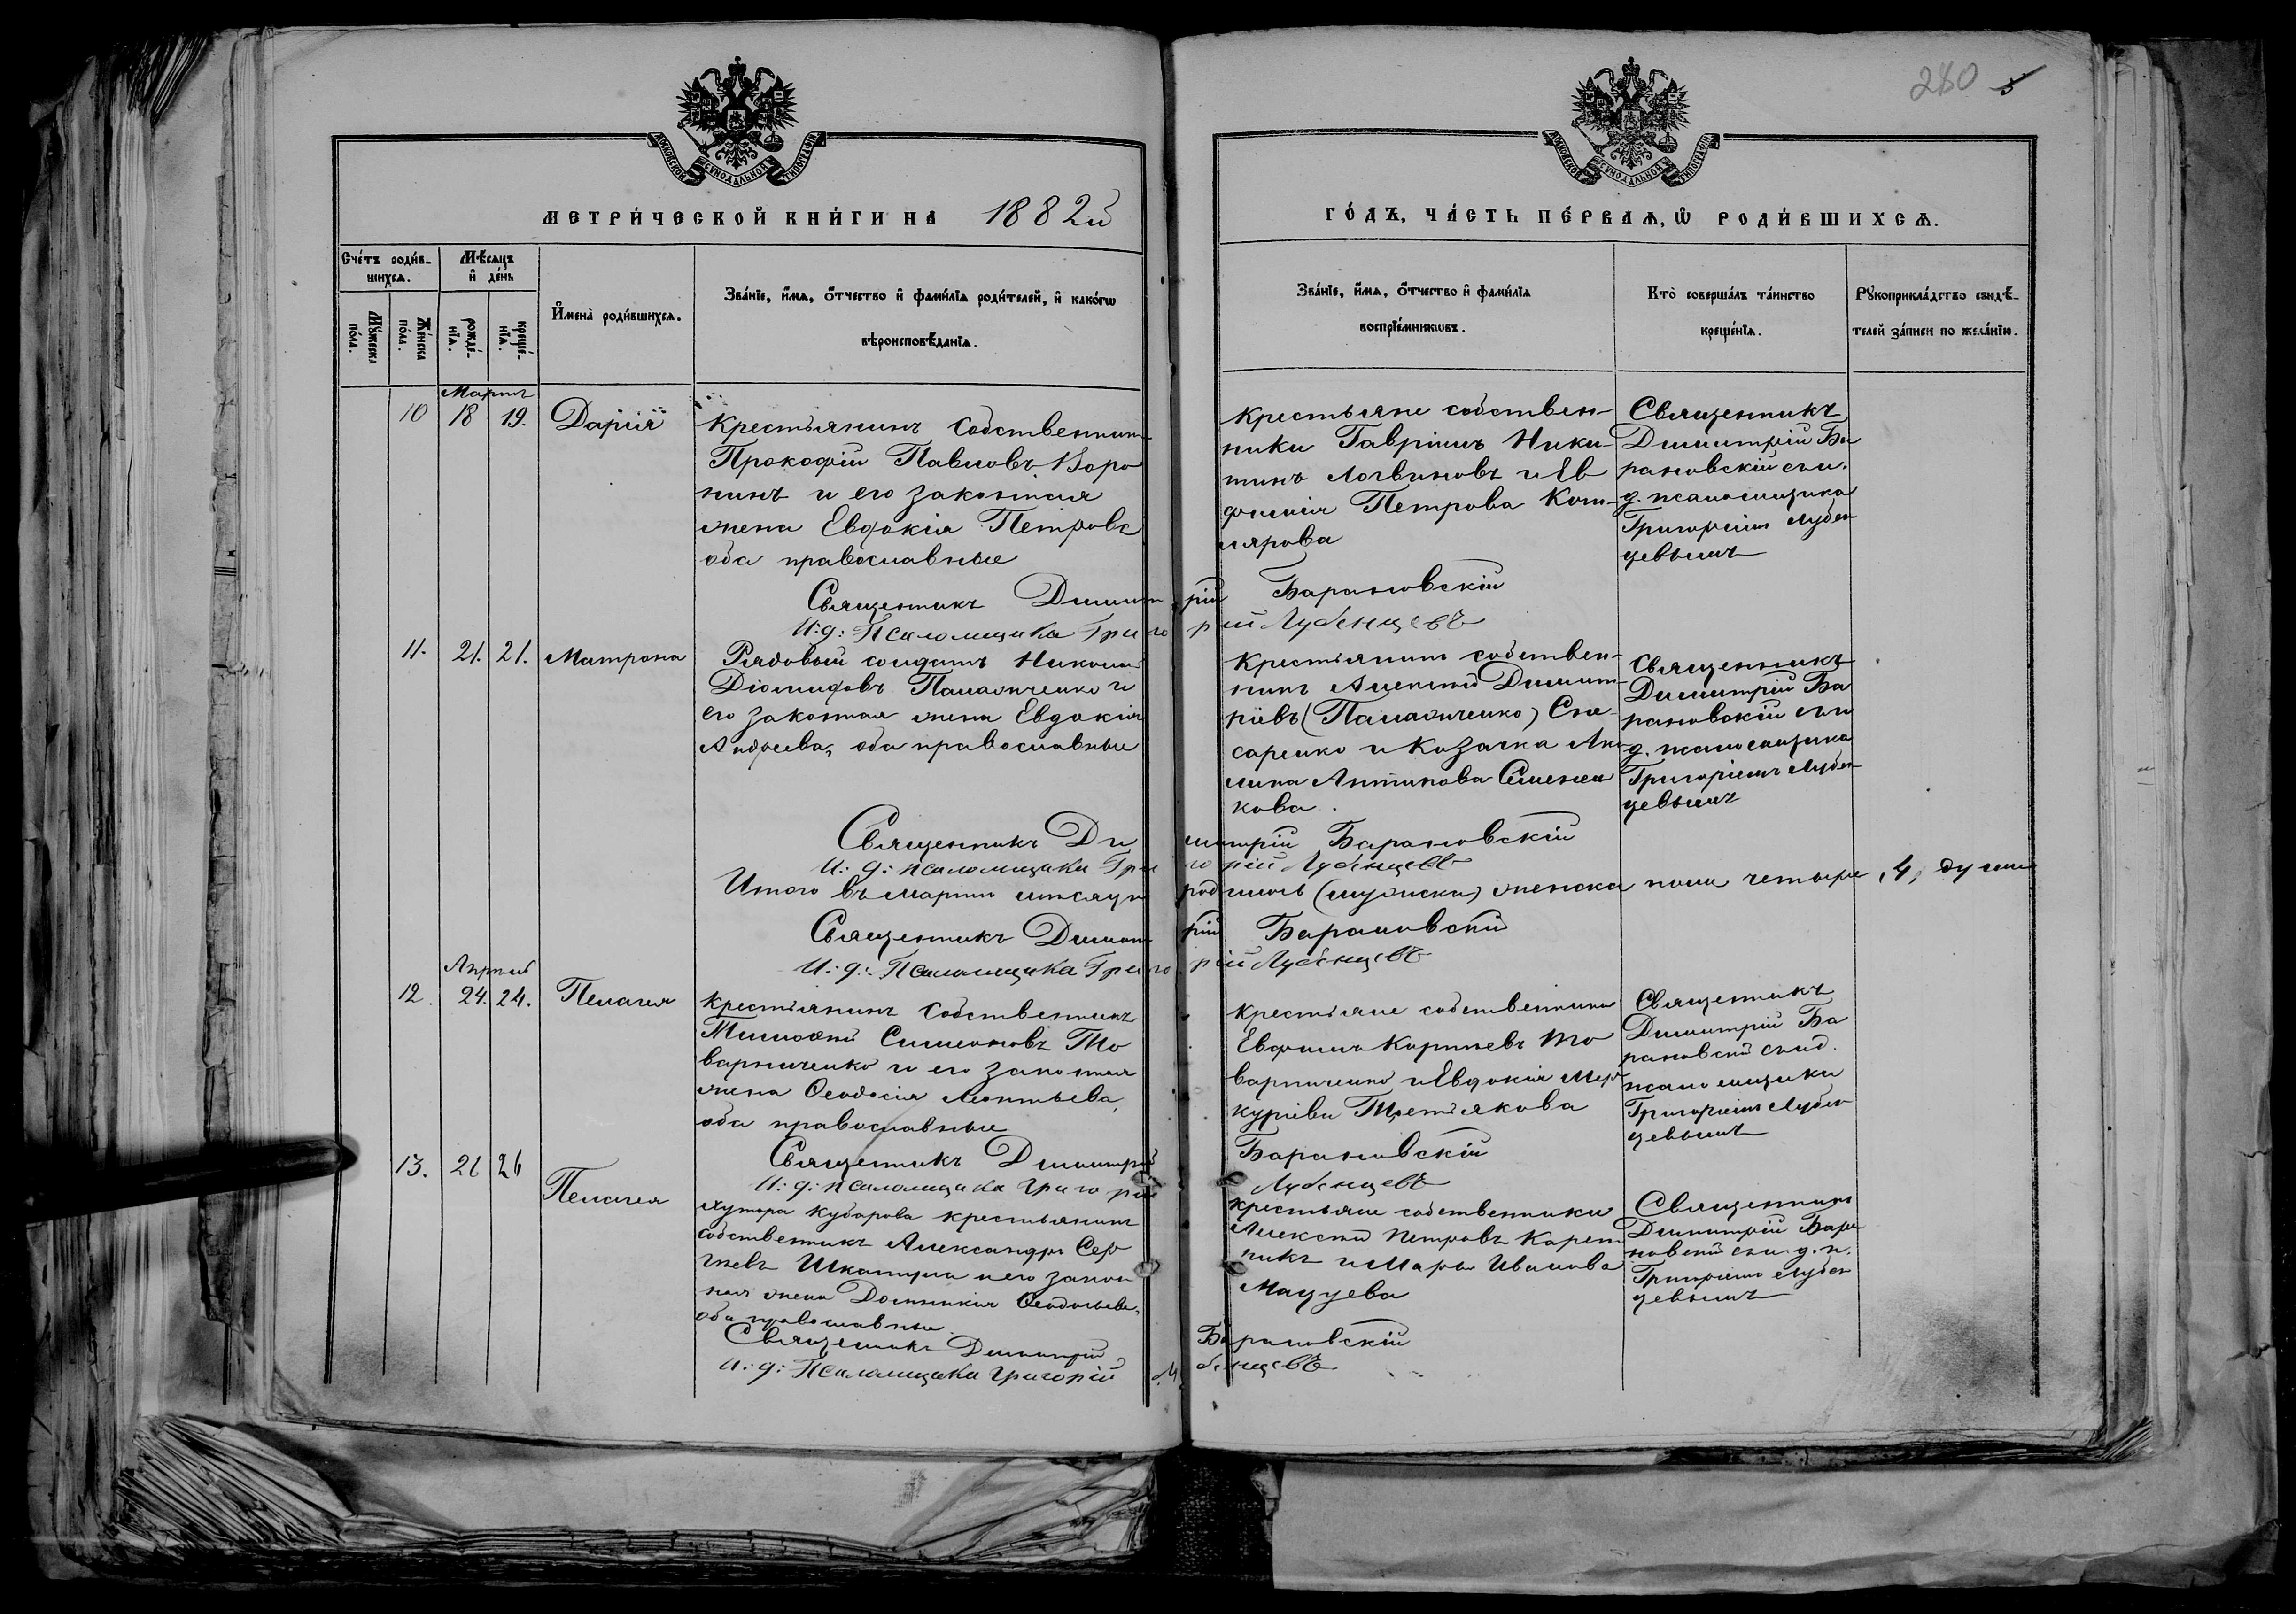 280 5
МОСКОВСКОЙ СѴНОДАЛЬНОЙ ТИПОГРАФІИ
МОСКОВСКОЙ СѴНОДАЛЬНОЙ ТИПОГРАФІИ
МЕТРИ́ЧЕСКОЙ КНИ́ГИ НА 1882й
ГО́ДЪ, ЧА́СТЬ ПЕ́РВАѦ, Ѡ҆ РОДИ́ВШИХСѦ.
Сче́тъ роди́в-
шихсѧ.
Мѣ́сѧцъ
и҆ де́нь
Мꙋ́жеска
по́ла.
Же́нска
по́ла.
рожде́-
нїѧ.
креще́-
нїѧ.
И҆мена̀ роди́вшихсѧ.
Зва́нїе, и҆́мѧ, ѻ҆́тчество и҆ фами́лїѧ роди́телей, и҆ како́гѡ
вѣроисповѣ́данїѧ.
Зва́нїе, и҆́мѧ, ѻ҆́тчество и҆ фами́лїѧ
воспрїе́мникѡвъ.
Кто̀ соверша́лъ та́инство
креще́нїѧ.
Рꙋкоприкла́дство свидѣ́-
телей за́писи по жела́нїю.
Мартъ
10 18 19. Дарія
Крестьянинъ собственникъ
Прокофій Павловъ Воро
нинъ и его законная
жена Евдокія Петрова
оба православные
крестьяне собствен-
ники Гавріилъ Ники-
тинъ Логвиновъ и Ев
фимія Петрова Кот-
лярова
Священникъ
Димитрій Ба
рановскій съ и.
д. псаломщика
Григоріемъ Лубен
цевымъ
Священникъ Димитрій Барановскій
И: д: Псаломщика Григорій Лубенцевъ
11. 21. 21. Матрона
Рядовой солдатъ Николай
Діомидовъ Панасиченко и
его законная жена Евдокія
Андреева, оба православные
Крестьянинъ собствен-
никъ Алексѣй Димит-
ріевъ (Панасиченко) Сле-
саренко и Козачка Аку-
лина Антипова Семени
кова.
Священникъ
Димитрій Ба
рановскій съ и
д. псаломщика
Григоріемъ Лубен
цевымъ
Священникъ Димитрій Барановскій
И: д: псаломщика Григорій Лубенцевъ
Итого въ мартѣ мѣсяцѣ родилось (мужска) женска пола четыре, 4, души
Священникъ Димитрій Барановскій
И: д: Псаломщика Григорій Лубенцевъ
Апрѣль
12. 24. 24. Пелагея
Крестьянинъ собственникъ
Тимофей Симеоновъ То
варниченко и его законная
жена Ѳеодосія Леонтьева,
оба православные
Крестьяне собственники
Евфимъ Корниевъ То
варниченко и Евдокія Мер
куріева Третьякова
Священникъ
Димитрій Ба
рановскій съ и д.
псаломщика
Григоріемъ Лубен
цевымъ
Священникъ Димитрій Барановскій
И: д: псаломщика Григорій Лубенцевъ
13. 26 26 Пелагея
хутора Кубарова крестьянинъ
собственникъ Александръ Сер
гѣевъ Шкатула и его закон
ная жена Домникія Ѳеодосьева,
оба православные
крестьяне собственники
Алексѣй Петровъ Карет
никъ и Марья Иванова
Мацуева
Священникъ
Димитрій Бара
новскій съ и. д. п.
Григоріемъ Лубен
цевымъ
Священникъ Димитрій Барановскій
И: д: Псаломщика Григорій Лубенцевъ